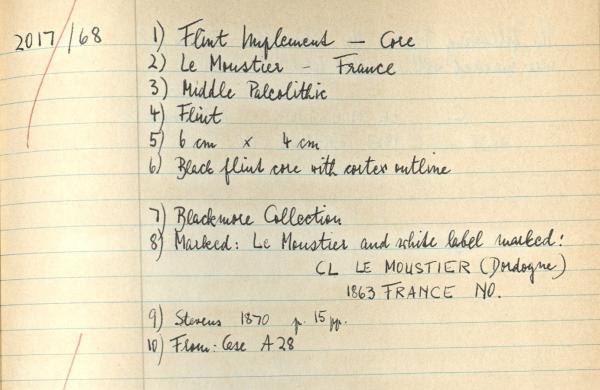 2017/68
1) Flint Implement – Core
2) Le Moustier – France
3) Middle Palcolithic
4) Flint
5) 6 cm x 4 cm
6) Black flint core with cortex outline
7) Blackmore Collection
8) Marked: Le Moustier and white label marked:
CL LE MOUSTIER (Dordogne)
1863 FRANCE NO.
9) Stevens 1870 p. 15 pp.
10) From: Case A 28